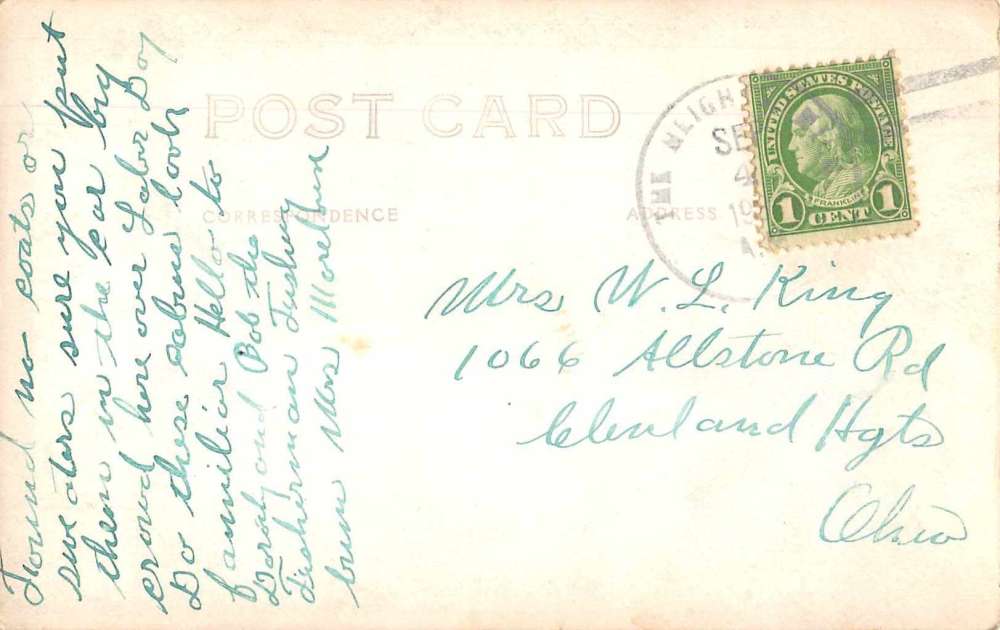 POST CARD
CORRESPONDENCE
ADDRESS
THE
SE
4
19
A
UNITED STATES POSTAGE
FRANKLIN
1 CENT 1
Mrs W. L. King
1066 Allstone Rd
Clevland Hgts
Ohio
Found no coats or
sweaters sure you put
them in the car big
crowd here over Labor Day
Do these cabins look
familiar Hello to
and Bob the
Fisherman
Mrs